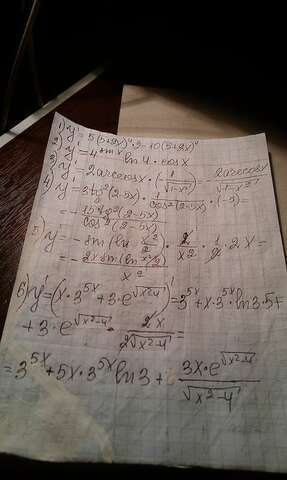 1) y' = 5(5+2x)⁴·2 = 10(5+2x)⁴
2) y' = 4^(sin x) ln 4 · cos x
3) y' = 2arccos x · (- 1/√(1-x²)) = - 2arccos x/√(1-x²)
4) y' = 3tg²(2-5x) · 1/cos²(2-5x) · (-5) =
= - 15tg²(2-5x)/cos²(2-5x)
5) y' = - sin(ln x²/2) · 2/x² · 1/2 · 2x =
= - 2x sin(ln x²/2)/x²
6) y' = (x·3^(5x) + 3·e^(√(x²-4)))' = 3^(5x) + x·3^(5x)·ln3·5 +
+ 3·e^(√(x²-4)) · 2x/2√(x²-4)
= 3^(5x) + 5x·3^(5x) ln3 + 3x·e^(√(x²-4))/√(x²-4)